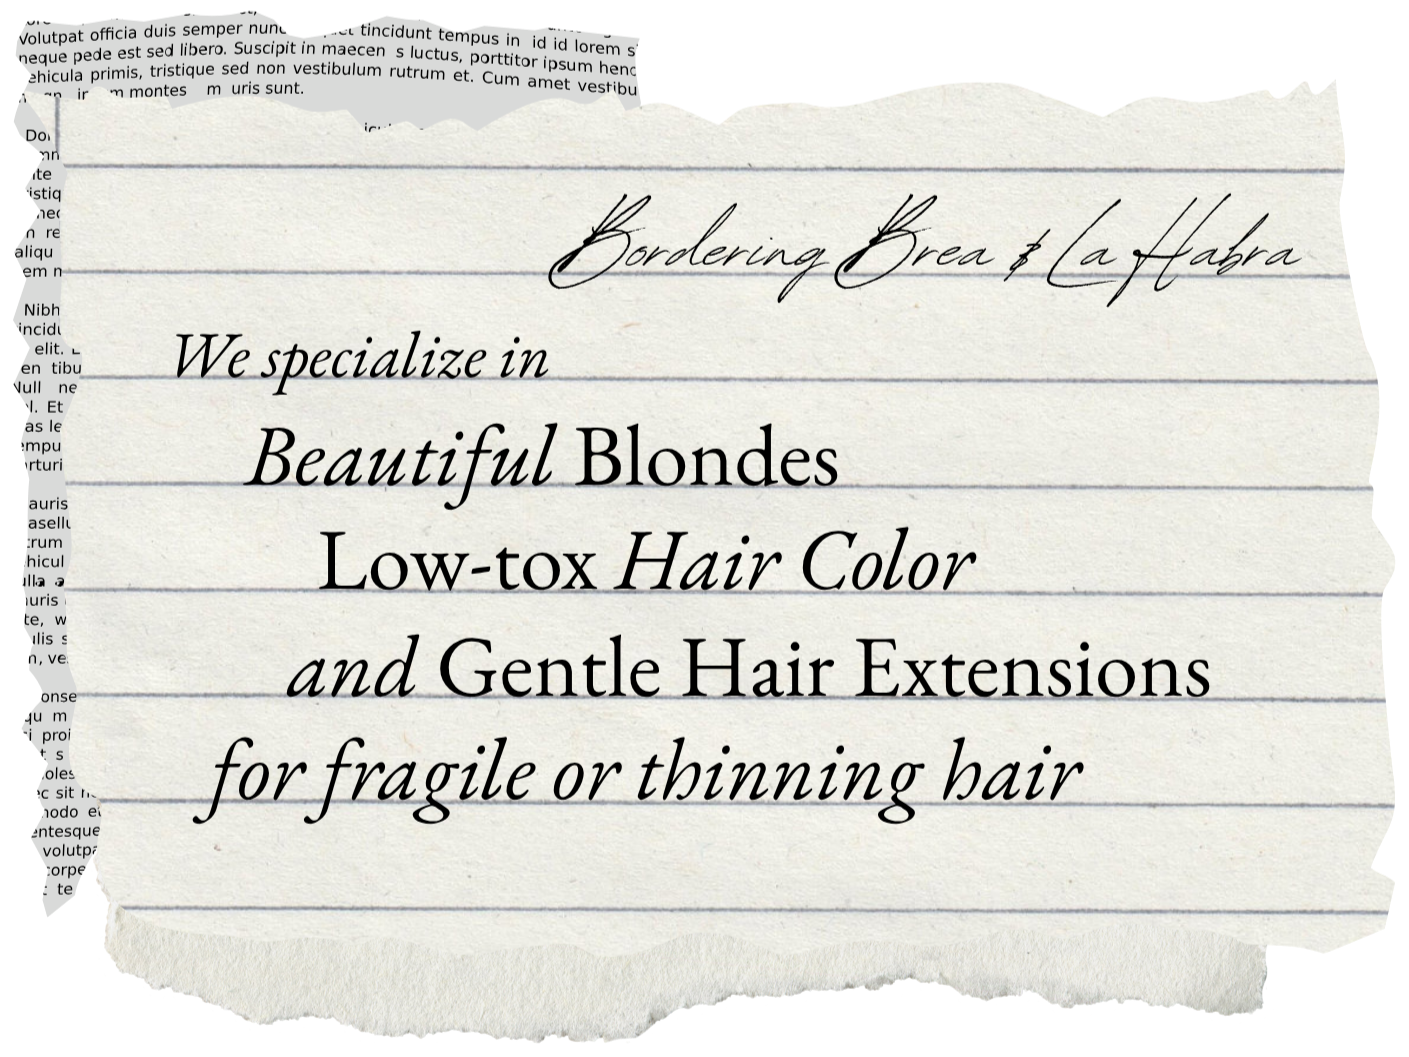 Volutpat officia duis semper nunc tincidunt tempus in id id lorem
neque pede est sed libero. Suscipit in maecen s luctus, porttitor ipsum
ehicula primis, tristique sed non vestibulum rutrum et. Cum amet vestibu
montes m uris sunt.
Bordering Brea & La Habra
We specialize in
Beautiful Blondes
Low-tox Hair Color
and Gentle Hair Extensions
for fragile or thinning hair